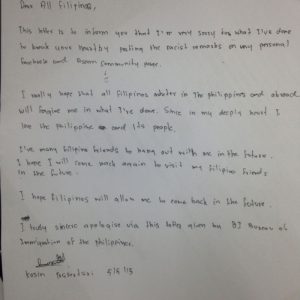 Dear All Filipinos,
This letter is to inform you that I'm very sorry for what I've done
to break your heart by posting the racist remarks on my personal
facebook and Asean community page.
I really hope that all filipinos whether in the philippines and abroad
will forgive me in what I've done. Since in my deeply heart I
love the philippine and its people.
I've many filipino friends to hang out with me in the future.
I hope I will come back again to visit my filipino friends
in the future.
I hope filipinos will allow me to come back in the future.
I truly sincere apologise via this letter given by BI Bureau of
Immigration of the philippines.
Kosin 5/5/15